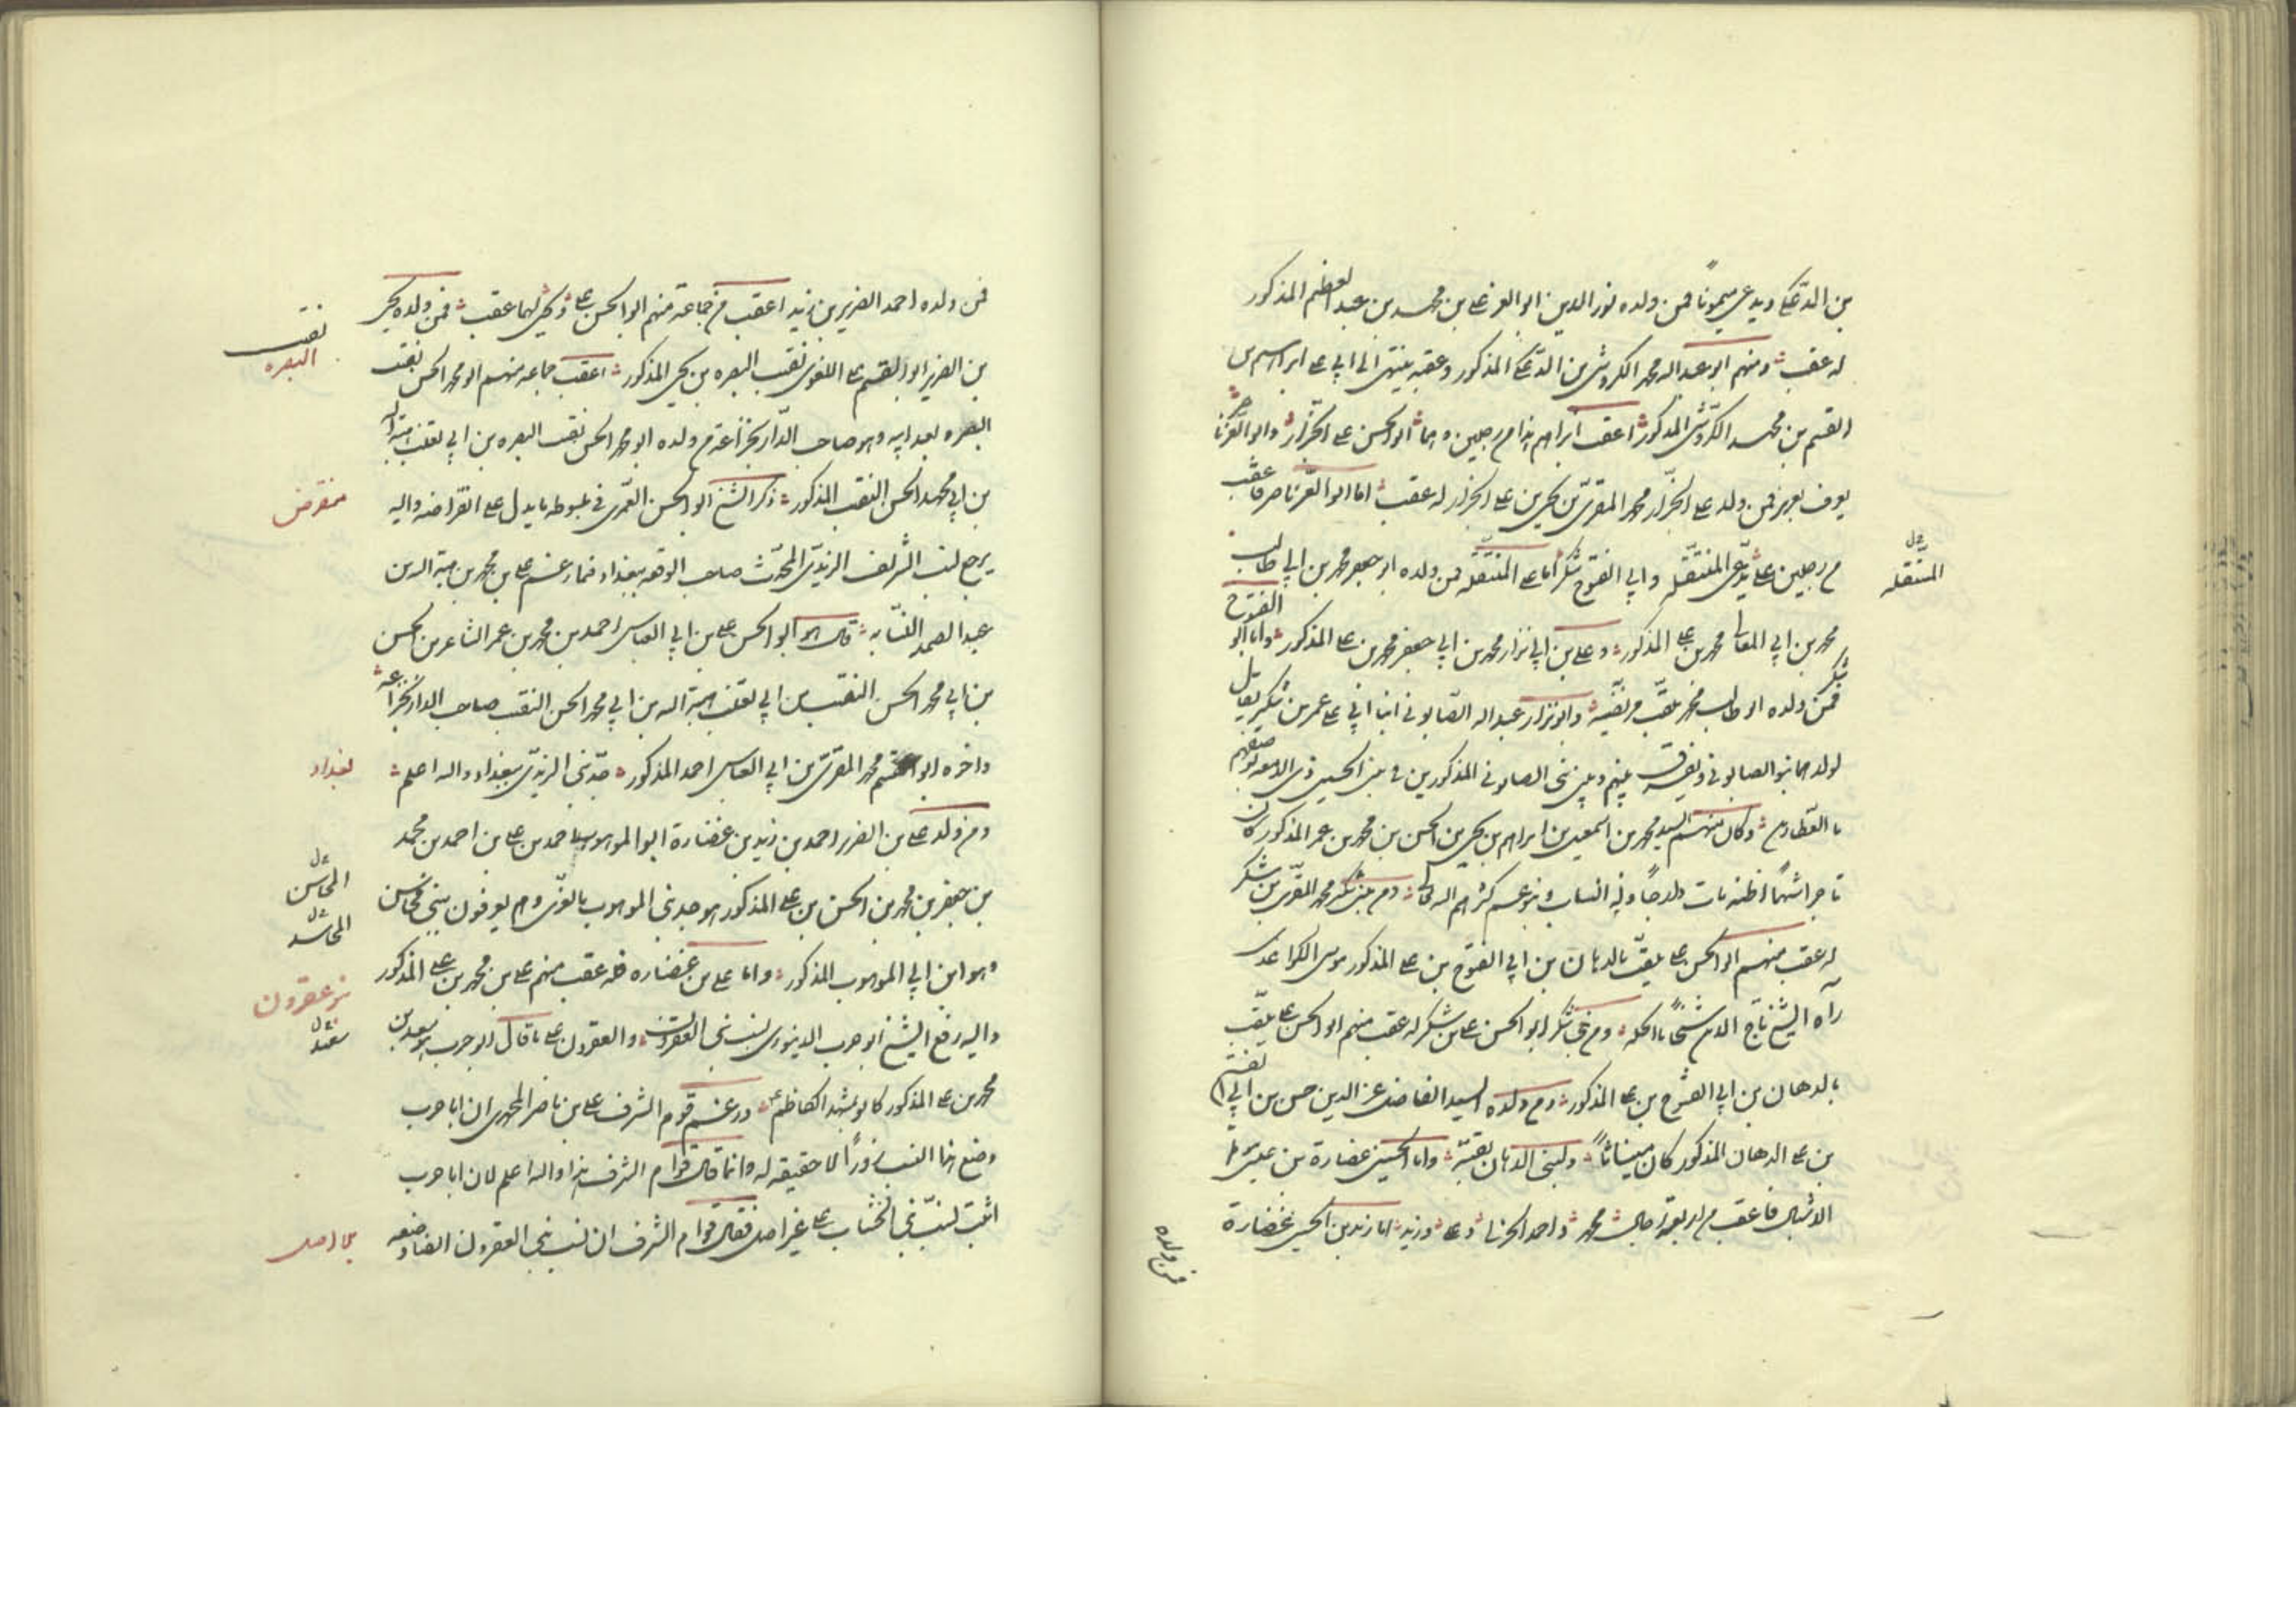 بن الدعكي ويدعى ميمونا فمن ولده نور الدين ابو العز علي بن محمد بن عبد العظيم المذكور
له عقب ومنهم ابو عبد الله محمد الكروشي بن الدعكي المذكور وعقبه ينتهي الى ابي علي ابراهيم بن
القسم بن محمد الكروشي المذكور اعقب ابراهيم هذا من رجلين وهما ابو الحسن علي الخزاز وابو العز ناصر
يعرف بعزيز فمن ولد علي الخزاز محمد المقري بن يحيى بن علي الخزاز له عقب اما ابو العز ناصر فاعقب
من رجلين علي يدعى المنتقله وابي الفتوح شكر اما علي المنتقله فمن ولده ابو جعفر محمد بن ابي طالب
محمد بن ابي المعالي محمد بن علي المذكور وعلي بن ابي نزار محمد بن ابي جعفر محمد بن علي المذكور واما ابو الفتوح
شكر فمن ولده ابو طالب محمد يلقب وابو نزار عبد الله الصابوني ابنا ابي علي عمر بن شكر يقال
لولدهما بنو الصابوني ويفرق بينهم وبين بني الصابوني المذكورين في بني الحسين ذي الدمعه
وكان منهم السيد محمد بن اسمعيل بن ابراهيم بن يحيى بن الحسن بن محمد بن عمر المذكور كان
تاجرا شهما اظنه مات دارجا وله انساب وبنو عم كثرهم الله ومن بني شكر محمد المقري بن شكر
له عقب منهم ابو الحسن علي يلقب بالدهان بن ابي الفتوح بن علي المذكور
رآه الشيخ تاج الدين شيخا بالحله ومن بني شكر ابو الحسن علي بن شكر له عقب منهم ابو الحسن علي يلقب
بالدهان بن ابي الفتوح بن علي المذكور ومن ولده السيد الفاضل عز الدين حسن بن ابي الفتح
بن علي الدهان المذكور كان ميناثا ولبني الدهان بقيه واما الحسين غضارة بن عيسى موتم
الاشبال فاعقب من اربعة رجال محمد واحمد وعلي وزيد اما زيد بن الحسين غضارة
فمن ولده
المنتقله
فمن ولده احمد الضرير بن زيد اعقب من جماعة منهم ابو الحسن علي ويحيى لهما عقب فمن ولد يحيى
بن الضرير ابو القسم علي اللغوي نقيب البصره بن يحيى المذكور اعقب جماعه منهم ابو محمد الحسن نقيب
البصره بعد ابيه وهو صاحب الدار بخزاعة من ولده ابو محمد الحسن نقيب البصره بن ابي تغلب هبة الله
بن ابي محمد الحسن النقيب المذكور ذكر الشيخ ابو الحسن العمري في مبسوطه ما يدل على انقراضه واليه
يرجع نسب الشريف الزيدي المحدث صاحب الوقف ببغداد فيما زعم علي بن محمد بن هبة الله بن
عبد الصمد النسابه قال هو ابو الحسن علي بن ابي العباس احمد بن محمد بن عمر الشاعر بن الحسن
بن ابي محمد الحسن النقيب بن ابي تغلب هبة الله بن ابي محمد الحسن النقيب صاحب الدار بخزاعه
واخره ابو القسم محمد المقري بن ابي العباس احمد المذكور جد بني الزيدي ببغداد والله اعلم
ومن ولد علي بن الضرير احمد بن زيد بن غضارة ابو الموهوب احمد بن علي بن احمد بن محمد
بن جعفر بن محمد بن الحسن بن علي المذكور هو جد بني الموهوب بالغري وهم يعرفون ببني محاسن
وهو ابن ابي الموهوب المذكور واما علي بن غضاره فله عقب منهم علي بن محمد بن علي المذكور
واليه رفع الشيخ ابو حرب الدينوري نسب بني العقرون والعقرون على ما قال ابو حرب هو سعد بن
محمد بن علي المذكور كانوا بمشهد الكاظم ع وزعم قوام الشرف علي بن ناصر المحمدي ان ابا حرب
وضع هذا النسب زورا لا حقيقه له وانما قال قوام الشرف هذا والله اعلم لان ابا حرب
اثبت نسب بني الخشاب على غير اصل فقال قوام الشرف ان نسب بني العقرون ايضا وضعه
نقيب
البصره
منقرض
بغداد
المحاسن
بنو عقرون
سعد
بلا اصل